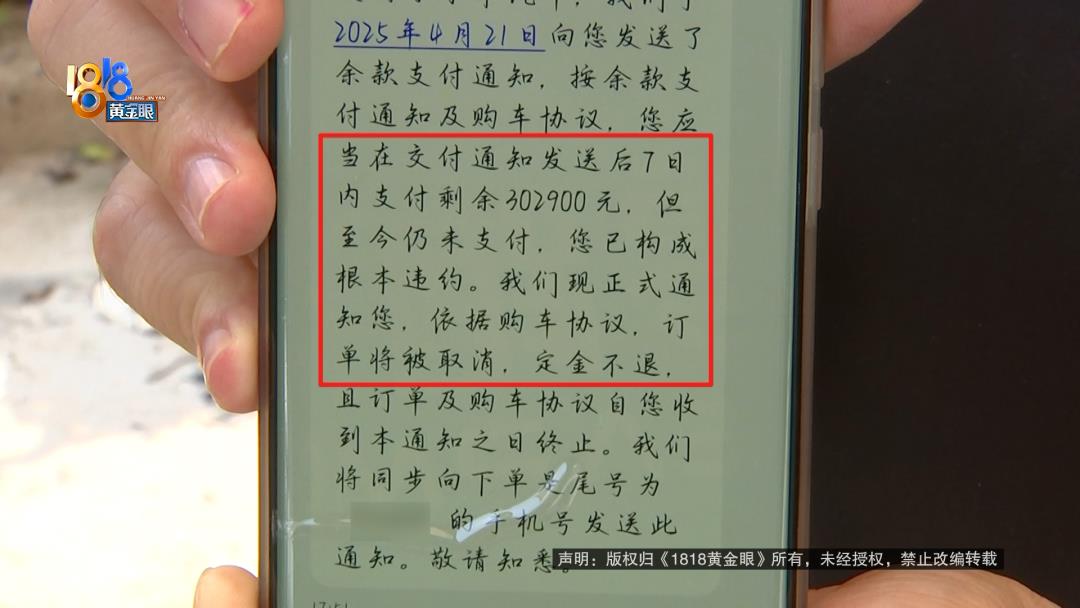 2025年4月21日向您发送了
余款支付通知，按余款支
付通知及购车协议，您应
当在交付通知发送后7日
内支付剩余302900元，但
至今仍未支付，您已构成
根本违约。我们现正式通
知您，依据购车协议，订
单将被取消，定金不退，
且订单及购车协议自您收
到本通知之日终止。我们
将同步向下单是尾号为
的手机号发送此
通知。敬请知悉。
17:51
1818
HUANG JIN YAN
黄金眼
声明：版权归《1818黄金眼》所有，未经授权，禁止改编转载